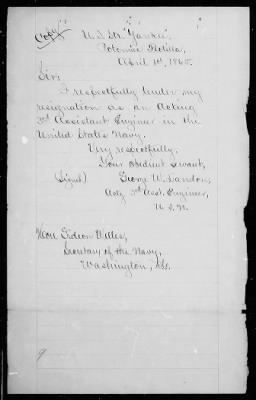 (Copy) U.S. Str. "Yankee",
Potomac Flotilla,
April 1st, 1865.
Sir;
I respectfully tender my
resignation as an Acting
3rd Assistant Engineer in the
United States Navy.
Very respectfully,
Your obedient servant,
(Signed) George W. Landon,
Actg 3rd Asst. Engineer,
U.S.N.
Hon. Gideon Welles,
Secretary of the Navy,
Washington,